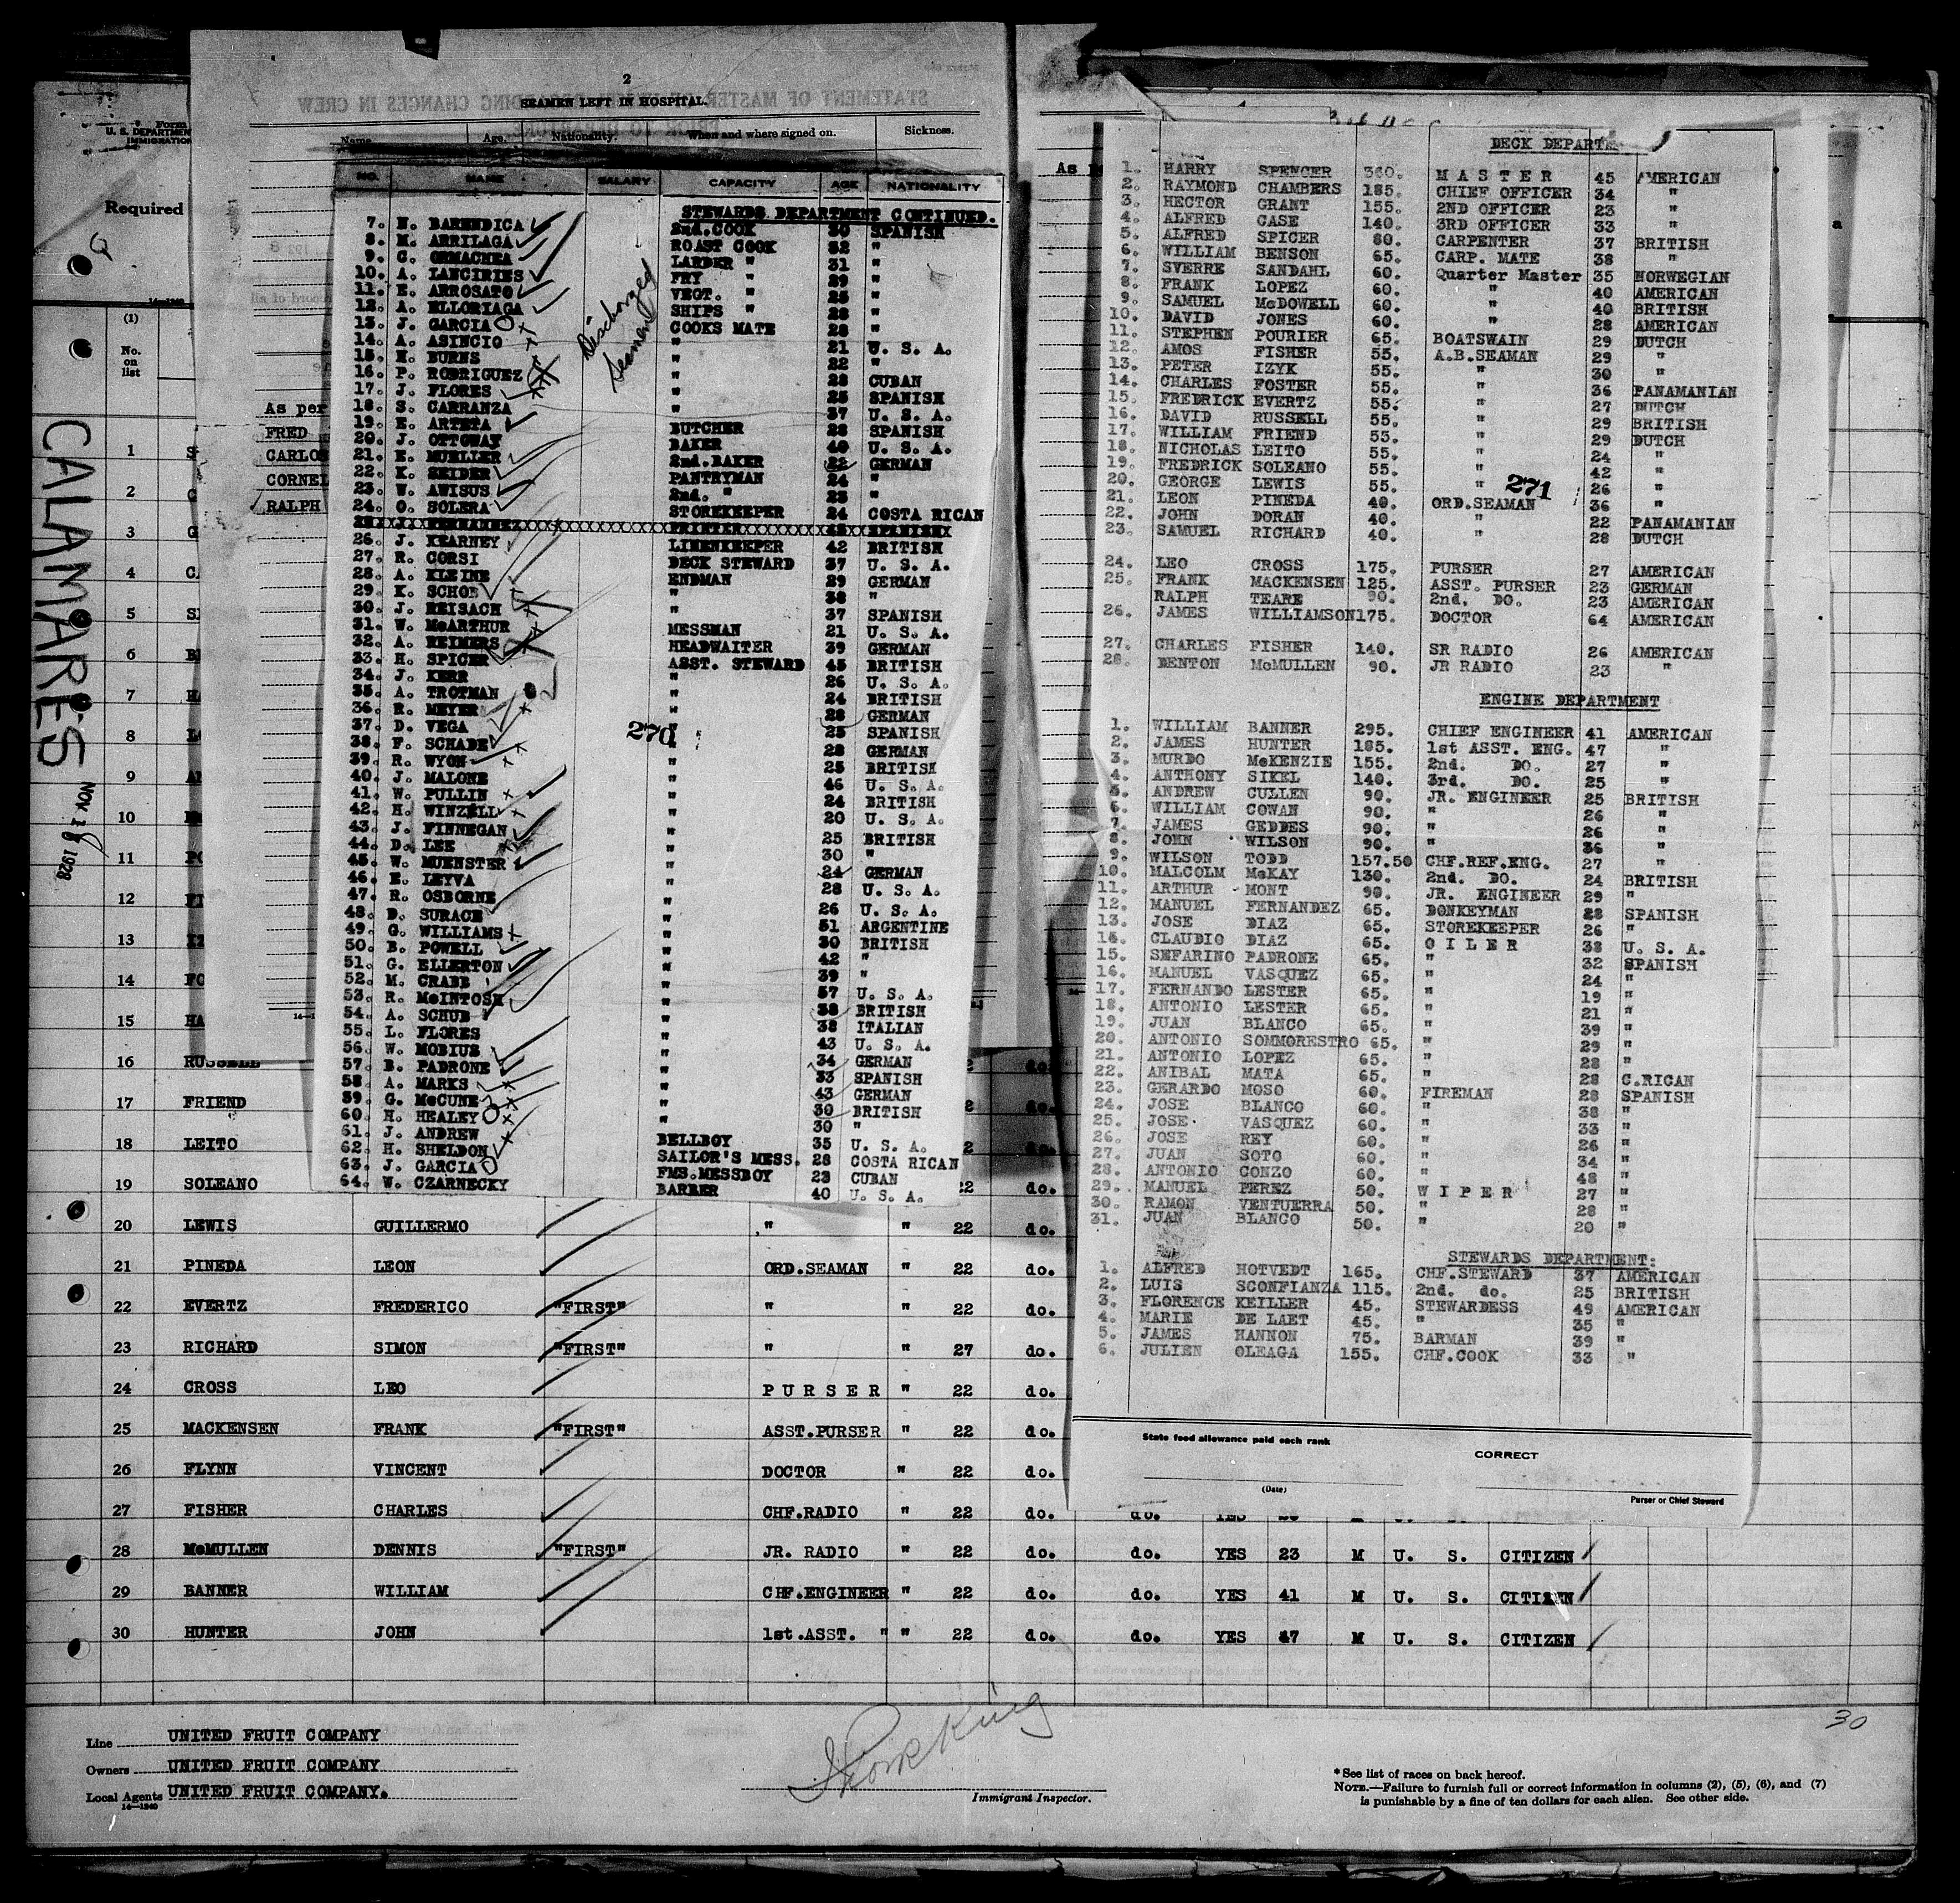 2
SEAMEN LEFT IN HOSPITAL.
Form
U. S. DEPARTMENT
IMMIGRATION
Required
Name Age. Nationality. When and where signed on. Sickness.
(1)
No.
on
list
CALAMARES
NOV 18 1928
As per
FRED
CARLOS
CORNEL
RALPH
NO. NAME SALARY CAPACITY AGE NATIONALITY
STEWARDS DEPARTMENT CONTINUED.
Discharged
Seamen
7. N. BARENDICA 2nd.COOK 30 SPANISH
8. M. ARRILAGA ROAST COOK 32 "
9. C. ORMACHEA LARDER " 31 "
10. A. LANCIRIES FRY " 29 "
11. E. ARROSATO VEGT. " 25 "
12. A. ELLORIAGA SHIPS " 28 "
13. J. GARCIA COOKS MATE 28 "
14. A. ASINCIO " 21 U. S. A.
15. N. BURNS " 22 "
16. P. RODRIGUEZ " 28 CUBAN
17. J. FLORES " 25 SPANISH
18. S. CARRANZA " 37 U. S. A.
19. E. ARTETA BUTCHER 28 SPANISH
20. J. OTTOWAY BAKER 40 U. S. A.
21. E. MUELLER 2nd.BAKER 22 GERMAN
22. K. SEIDER PANTRYMAN 24 "
23. W. AWISUS 2nd. " 23 "
24. O. SOLERA STOREKEEPER 24 COSTA RICAN
25 J. FERNANDEZ PRINTER SPANISH
26. J. KEARNEY LINENKEEPER 42 BRITISH
27. R. CORSI DECK STEWARD 37 U. S. A.
28. A. KLEINE ENDMAN 29 GERMAN
29. K. SCHOB " 38 "
30. J. REISACH " 37 SPANISH
31. W. McARTHUR MESSMAN 21 U. S. A.
32. A. REIMERS HEADWAITER 39 GERMAN
33. H. SPICER ASST. STEWARD 45 BRITISH
34. J. KERR " 26 U. S. A.
35. A. TROTMAN " 24 BRITISH
36. R. MEYER " 28 GERMAN
37. D. VEGA " 25 SPANISH
270
38. F. SCHADE " 28 GERMAN
39. R. WYON " 25 BRITISH
40. J. MALONE " 46 U. S. A.
41. W. PULLIN " 24 BRITISH
42. H. WINZELL " 20 U. S. A.
43. J. FINNEGAN " 25 BRITISH
44. D. LEE " 30 "
45. W. MUENSTER " 24 GERMAN
46. E. LEYVA " 28 U. S. A.
47. R. OSBORNE " 26 U. S. A.
48. D. SURACE " 51 ARGENTINE
49. G. WILLIAMS " 30 BRITISH
50. B. POWELL " 42 "
51. G. ELLERTON " 39 "
52. M. CRABB " 57 U. S. A.
53. R. McINTOSH " 38 BRITISH
54. A. SCHUB " 38 ITALIAN
55. L. FLORES " 43 U. S. A.
56. W. MOBIUS " 34 GERMAN
57. B. PADRONE " 33 SPANISH
58. A. MARKS " 43 GERMAN
59. G. McCUNE " 30 BRITISH
60. H. HEALEY " 30 "
61. J. ANDREW BELLBOY 35 U. S. A.
62. H. SHELDON SAILOR'S MESS. 28 COSTA RICAN
63. J. GARCIA FMS.MESSBOY 23 CUBAN
64. W. CZARNECKY BARBER 40 U. S. A.
DECK DEPARTM
1. HARRY SPENCER 360. MASTER 45 AMERICAN
2. RAYMOND CHAMBERS 185. CHIEF OFFICER 34 "
3. HECTOR GRANT 155. 2ND OFFICER 23 "
4. ALFRED CASE 140. 3RD OFFICER 33 "
5. ALFRED SPICER 80. CARPENTER 37 BRITISH
6. WILLIAM BENSON 65. CARP. MATE 38 "
7. SVERRE SANDAHL 60. Quarter Master 35 NORWEGIAN
8. FRANK LOPEZ 60. " 40 AMERICAN
9. SAMUEL McDOWELL 60. " 40 BRITISH
10. DAVID JONES 60. " 28 AMERICAN
11. STEPHEN POURIER 65. BOATSWAIN 29 DUTCH
12. AMOS FISHER 55. A.B.SEAMAN 29 "
13. PETER IZYK 55. " 30 "
14. CHARLES FOSTER 55. " 36 PANAMANIAN
15. FREDRICK EVERTZ 55. " 27 DUTCH
16. DAVID RUSSELL 55. " 29 BRITISH
17. WILLIAM FRIEND 55. " 29 DUTCH
18. NICHOLAS LEITO 55. " 24 "
19. FREDRICK SOLEANO 55. " 42 "
20. GEORGE LEWIS 55. " 26 "
271
21. LEON PINEDA 40. ORD.SEAMAN 36 "
22. JOHN DORAN 40. " 22 PANAMANIAN
23. SAMUEL RICHARD 40. " 28 DUTCH
24. LEO CROSS 175. PURSER 27 AMERICAN
25. FRANK MACKENSEN 125. ASST. PURSER 23 GERMAN
RALPH TEARE 90. 2nd. DO. 23 AMERICAN
26. JAMES WILLIAMSON 175. DOCTOR 64 AMERICAN
27. CHARLES FISHER 140. SR RADIO 26 AMERICAN
28. DENTON McMULLEN 90. JR RADIO 23 "
ENGINE DEPARTMENT
1. WILLIAM BANNER 295. CHIEF ENGINEER 41 AMERICAN
2. JAMES HUNTER 185. 1st ASST. ENG. 47 "
3. MURDO McKENZIE 155. 2nd. DO. 27 "
4. ANTHONY SIKEL 140. 3rd. DO. 25 "
5. ANDREW CULLEN 90. JR. ENGINEER 25 BRITISH
6. WILLIAM COWAN 90. " 26 "
7. JAMES GEDDES 90. " 26 "
8. JOHN WILSON 90. " 36 "
9. WILSON TODD 157.50 CHF.REF.ENG. 27 "
10. MALCOLM McKAY 130. 2nd. DO. 24 BRITISH
11. ARTHUR MONT 90. JR. ENGINEER 29 "
12. MANUEL FERNANDEZ 65. DONKEYMAN 28 SPANISH
13. JOSE DIAZ 65. STOREKEEPER 26 "
14. CLAUDIO DIAZ 65. OILER 38 U. S. A.
15. SEFARINO PADRONE 65. " 32 SPANISH
16. MANUEL VASQUEZ 65. " 24 "
17. FERNANDO LESTER 65. " 19 "
18. ANTONIO LESTER 65. " 21 "
19. JUAN BLANCO 65. " 39 "
20. ANTONIO SOMMORESTRO 65. " 29 "
21. ANTONIO LOPEZ 65. " 28 "
22. ANIBAL MATA 65. " 28 C.RICAN
23. GERARDO MOSO 60. FIREMAN 28 SPANISH
24. JOSE BLANCO 60. " 38 "
25. JOSE VASQUEZ 60. " 33 "
26. JOSE REY 60. " 26 "
27. JUAN SOTO 60. " 34 "
28. ANTONIO CONZO 60. " 48 "
29. MANUEL PEREZ 50. WIPER 27 "
30. RAMON VENTUERRA 50. " 28 "
31. JUAN BLANCO 50. " 20 "
STEWARDS DEPARTMENT:
1. ALFRED HOTVEDT 165. CHF.STEWARD 37 AMERICAN
2. LUIS SCONFIANZA 115. 2nd. do. 25 BRITISH
3. FLORENCE KEILLER 45. STEWARDESS 49 AMERICAN
4. MARIE DE LAET 45. " 35 "
5. JAMES HANNON 75. BARMAN 39 "
6. JULIEN OLEAGA 155. CHF.COOK 33 "
State food allowance paid each rank
CORRECT
(Date)
Purser or Chief Steward
1
2
3
4
5
6
7
8
9
10
11
12
13
14
15
16 RUSSELL do.
17 FRIEND do.
18 LEITO do.
19 SOLEANO 22 do.
20 LEWIS GUILLERMO " " 22 do.
21 PINEDA LEON ORD.SEAMAN " 22 do.
22 EVERTZ FREDERICO "FIRST" " " 22 do.
23 RICHARD SIMON "FIRST" " " 27 do.
24 CROSS LEO PURSER " 22 do.
25 MACKENSEN FRANK "FIRST" ASST.PURSER " 22 do.
26 FLYNN VINCENT DOCTOR " 22 do.
27 FISHER CHARLES CHF.RADIO " 22 do. do.
28 McMULLEN DENNIS "FIRST" JR. RADIO " 22 do. do. YES 23 M U. S. CITIZEN
29 BANNER WILLIAM CHF.ENGINEER " 22 do. do. YES 41 M U. S. CITIZEN
30 HUNTER JOHN 1st.ASST. " " 22 do. do. YES 47 M U. S. CITIZEN
30
Line UNITED FRUIT COMPANY
Owners UNITED FRUIT COMPANY
Local Agents UNITED FRUIT COMPANY.
14—1240
Immigrant Inspector.
* See list of races on back hereof.
NOTE.—Failure to furnish full or correct information in columns (2), (5), (6), and (7)
is punishable by a fine of ten dollars for each alien. See other side.